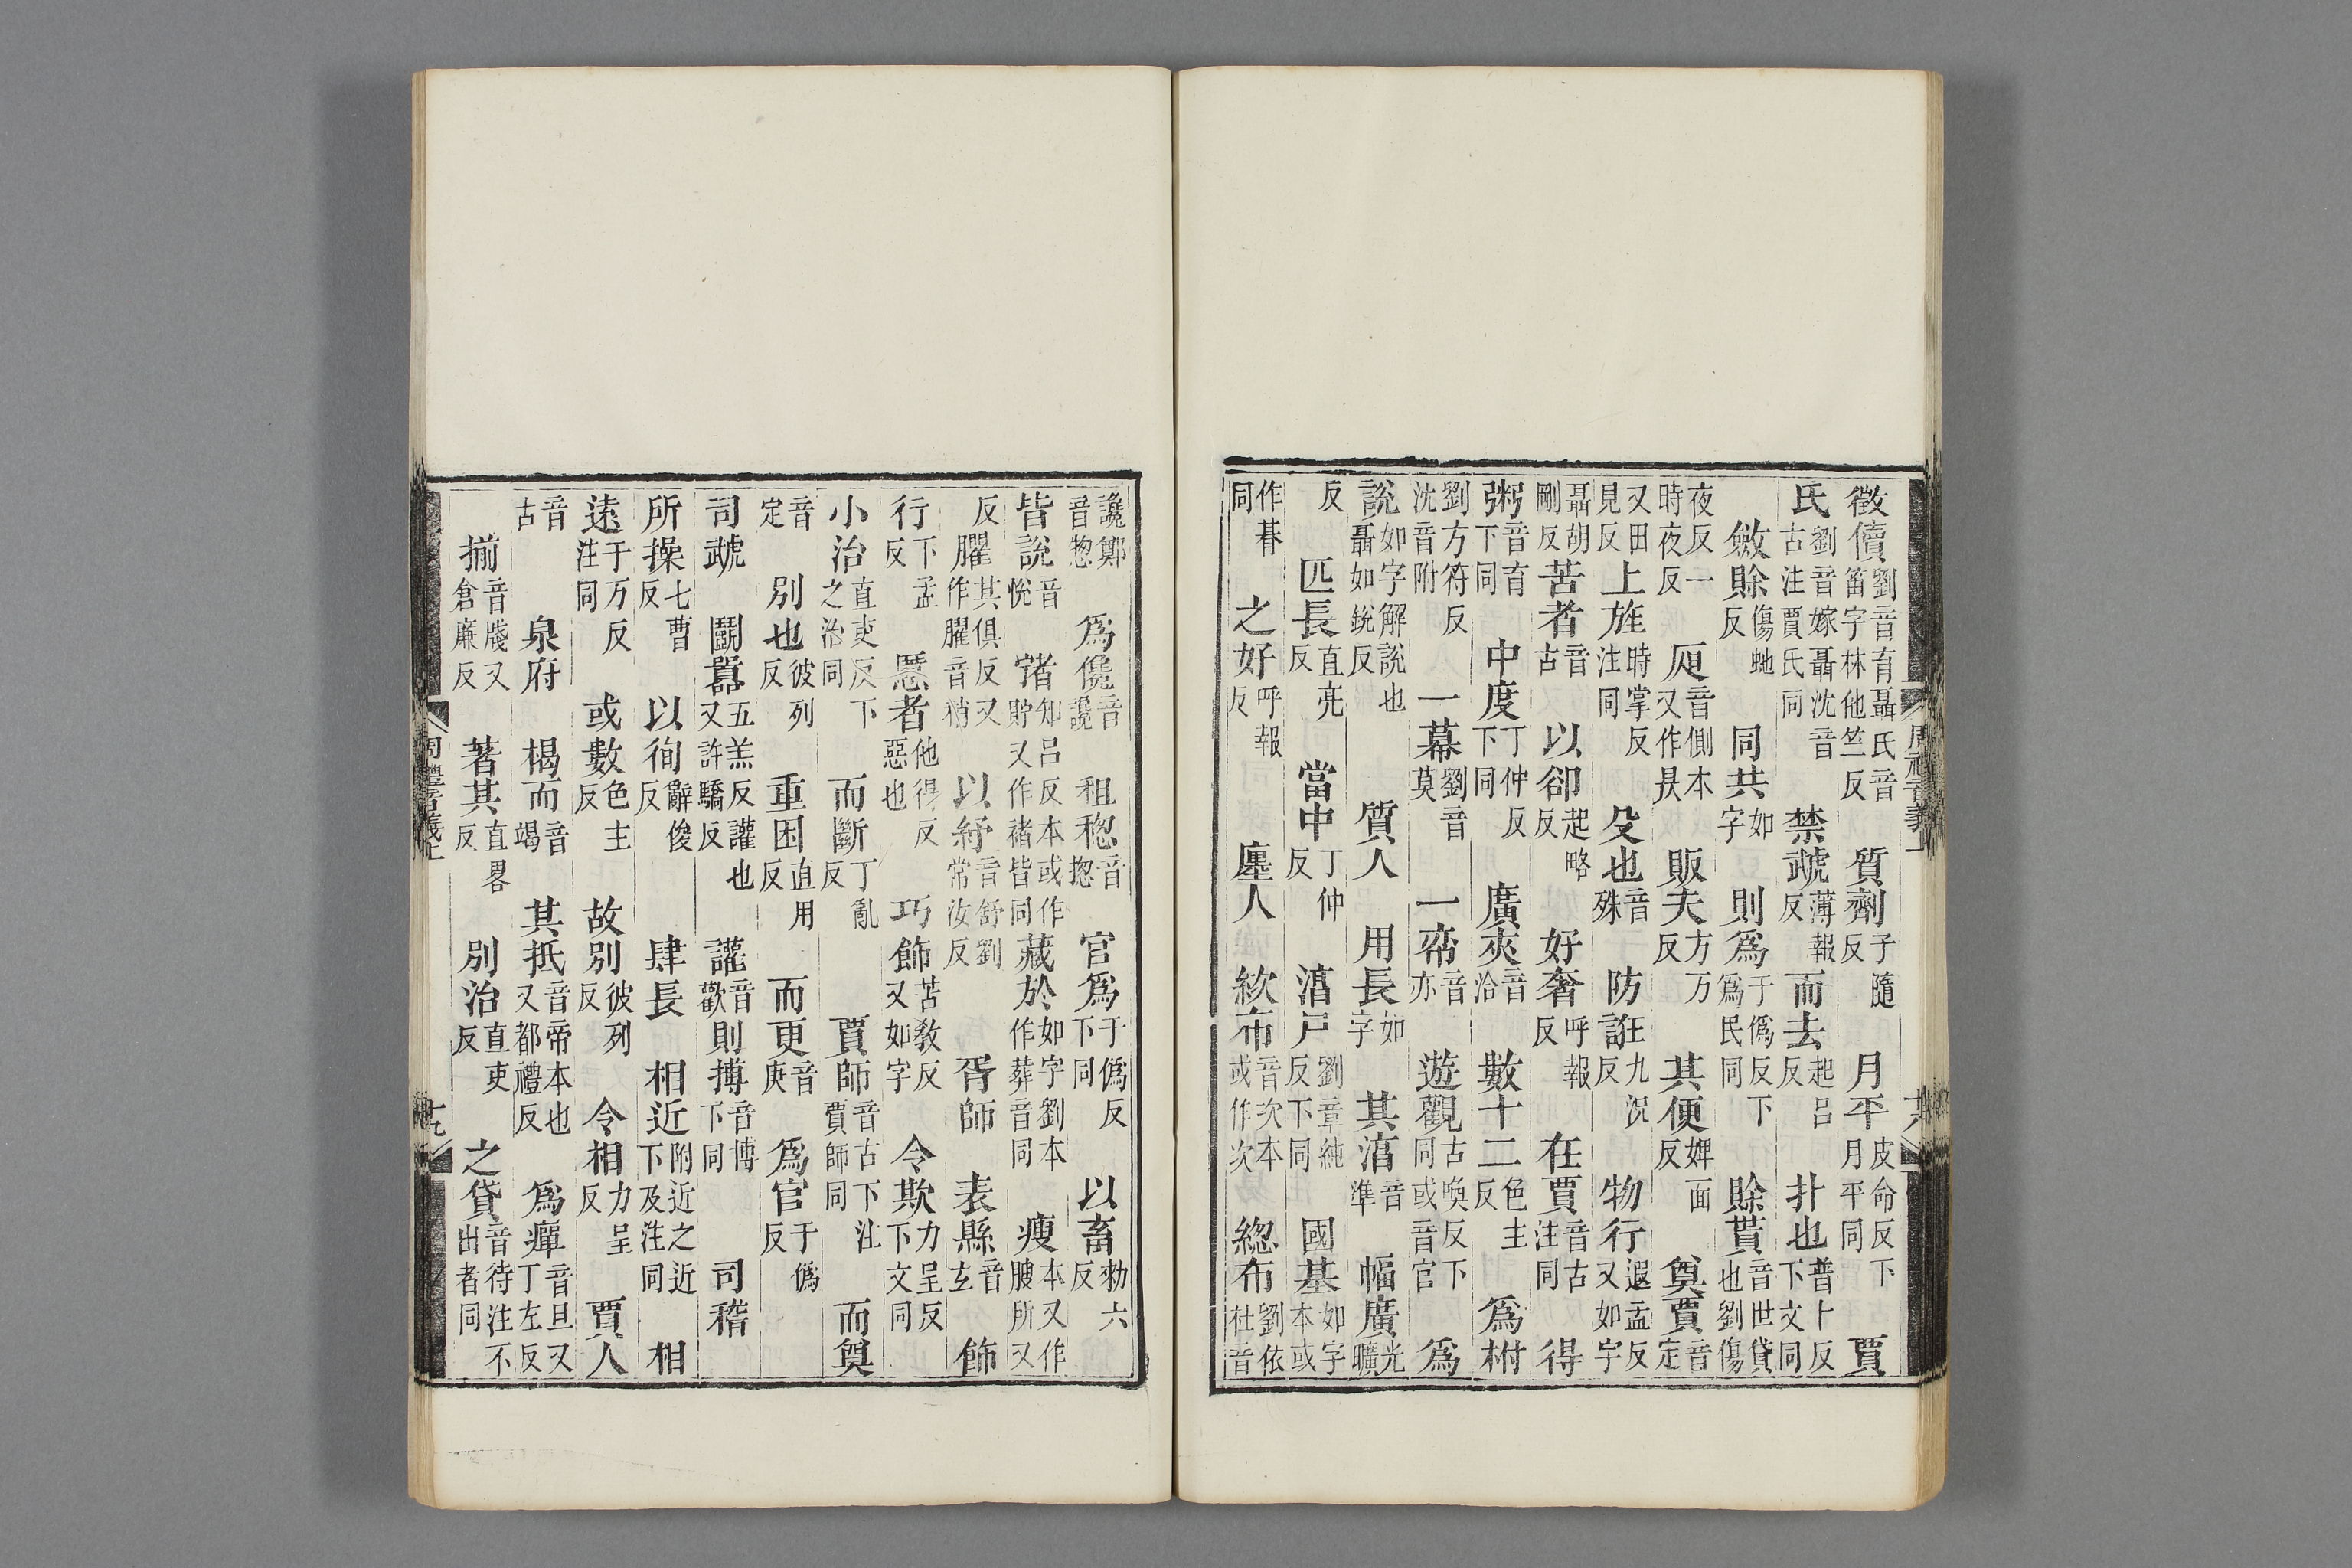 徵儥劉音育聶氏音笛字林他竺反 質劑子隨反 月平皮命反下月平同 賈
氏劉音嫁聶沈音古注賈氏同 禁虣薄報反 而去起呂反 扑也普卜反下文同
斂賖傷虵反 同共如字 則爲于僞反下爲民同 賖貰音世貸也劉傷
夜反一時夜反 㫼音側本又作昃 販夫方万反 其便婢面反 奠賈音定
又田見反 上旌時掌反注同 殳也音殊 防誑九況反 物行遐孟反又如字
聶胡剛反 苦者音古 以卻起略反 好奢呼報反 在賈音古注同 得
粥音育下同 中度丁仲反下同 廣夾音洽 數十二色主反 爲柎
劉方符反沈音附 一幕劉音莫 一帟音亦 遊觀古喚反下同或音官 爲
說如字解說也聶如銳反 質人 用長如字 其淔音準 幅廣光曠
反 匹長直亮反 當中丁仲反 淔尸劉章純反下同 國基如字本或
作朞同 之好呼報反 廛人 絘布音次本或作次 緫布劉依杜音
儳鄭音惣 爲儳音讒 租稅音揔 官爲于僞反下同 以畜勑六反
皆說音悅 㣃知呂反本或作貯又作褚皆同 藏於如字劉本作葬音同 瘦本又作膄所又
反 臞其俱反又作臞音稍 以紓音舒劉常汝反 胥師 表縣音玄 飾
行下孟反 慝者他得反惡也 巧飾苦敎反又如字 令欺力呈反下文同
小治直吏反下之治同 而斷丁亂反 賈師音古下注賈師同 而奠
音定 別也彼列反 重困直用反 而更音庚 爲官于僞反
司虣 鬬嚻五羔反讙也又許驕反 讙音歡 則搏音博下同 司稽
所操七曹反 以徇辭俊反 肆長 相近附近之近下及注同 相
遠于万反注同 或數色主反 故別彼列反 令相力呈反 賈人
音古 泉府 楬而音竭 其抵音帝本也又都禮反 爲癉音旦又丁左反
揃音牋又倉廉反 著其直畧反 別治直吏反 之貸音待注不出者同